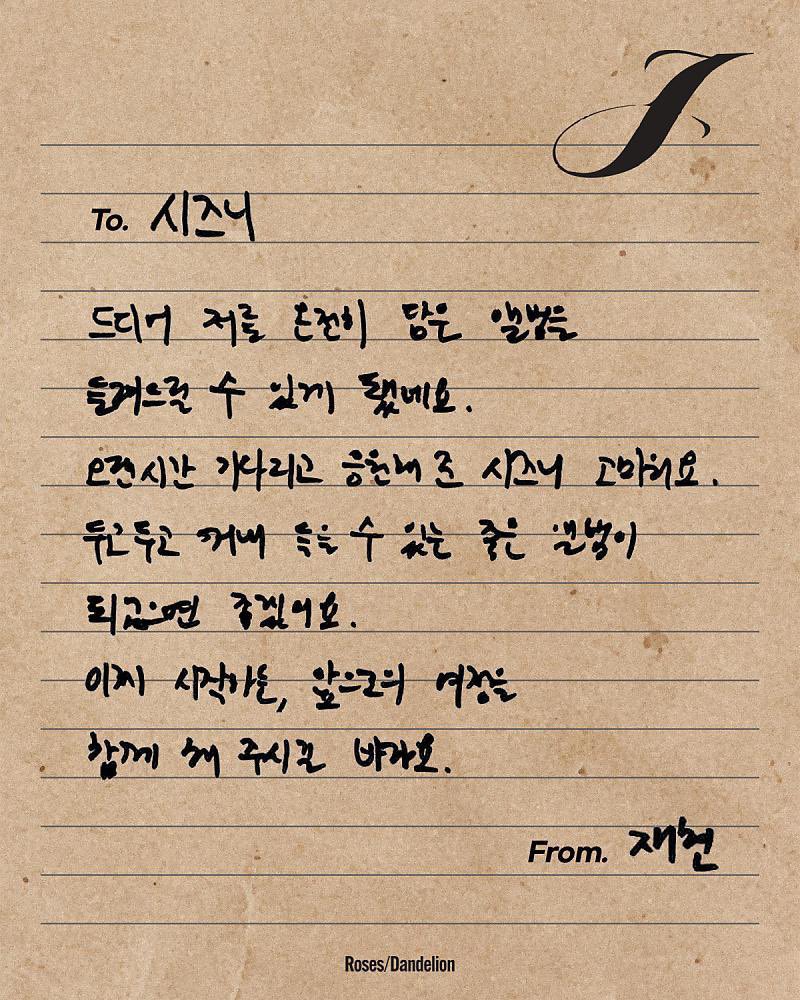 J
To. 시즈니
드디어 저를 온전히 담은 앨범을
들려드릴 수 있게 됐네요.
오랜시간 기다리고 응원해 준 시즈니 고마워요.
두고두고 꺼내 들을 수 있는 좋은 앨범이
되길 좋겠어요.
이제 시작하는, 앞으로의 여정을
함께 해 주시길 바라요.
From. 재현
Roses/Dandelion